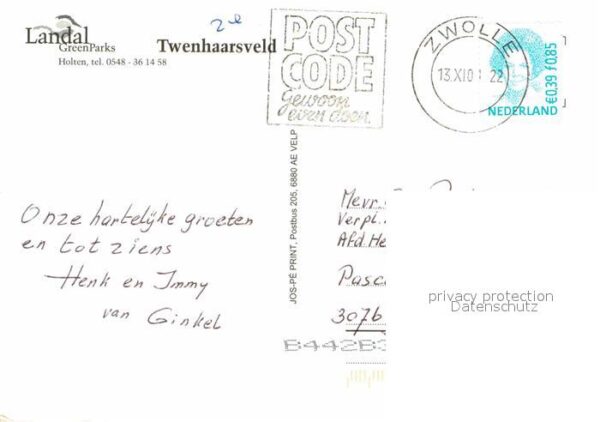 Landal
GreenParks
Twenhaarsveld
Holten, tel. 0548 - 36 14 58
2e
POST
CODE
Gewoon
even doen.
ZWOLLE
13.XI.01 22
€0,39 f0,85
NEDERLAND
JOS-PÉ PRINT, Postbus 205, 6880 AE VELP
Onze hartelijke groeten
en tot ziens
Henk en Immy
van Ginkel
Mevr.
Verpl.
Afd He
Pasca
3076
B442B3
privacy protection
Datenschutz